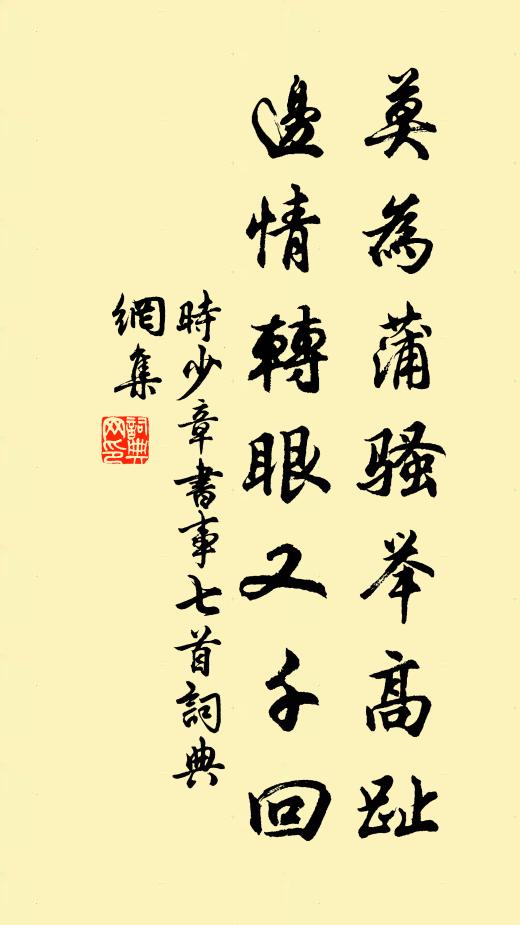 莫為蒲骚举高趾
邊情轉眼又千回
時少章書事七首詞典
網集
詞典
网印